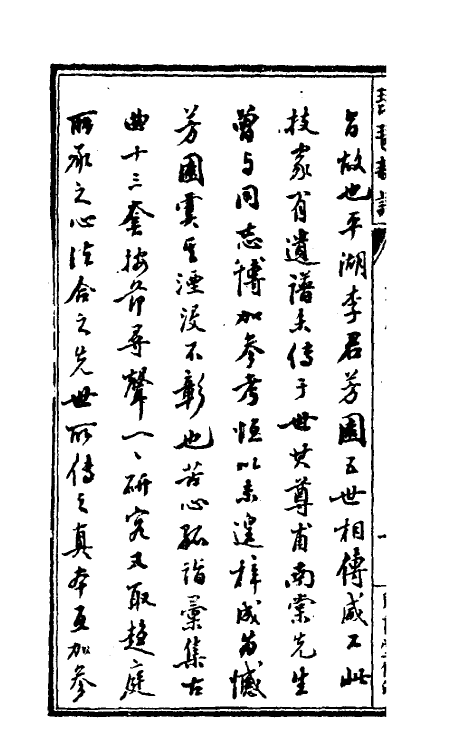 旨故也平湖李君芳園五世相傳咸工此
技家有遺譜未傳于世其尊甫南棠先生
曾与同志博加參考恆以未遑梓成為憾
芳園虞其湮沒不彰也苦心孤詣彙集古
曲十三套按节尋聲一、研究又取趨庭
所承之心法合之先世所傳之真本互加參